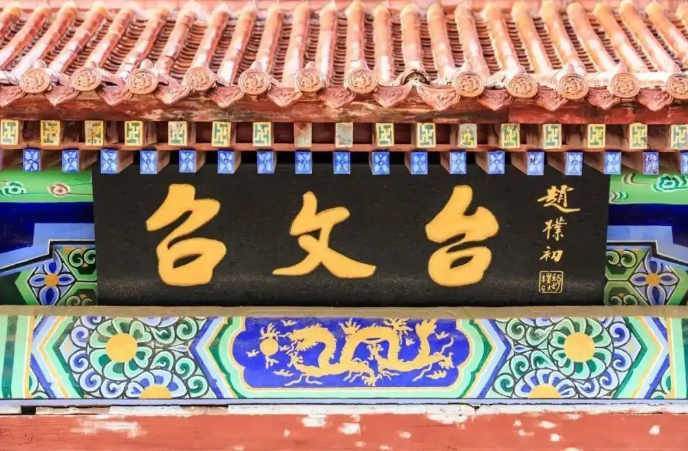 召文台
趙樸初